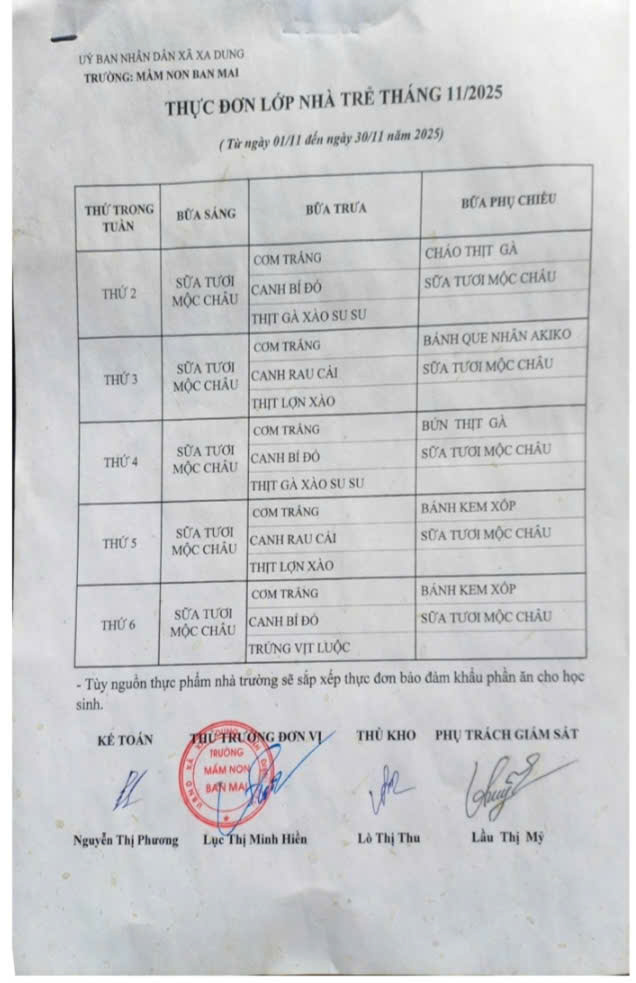 UỶ BAN NHÂN DÂN XÃ XA DUNG
TRƯỜNG: MẦM NON BAN MAI
THỰC ĐƠN LỚP NHÀ TRẺ THÁNG 11/2025
( Từ ngày 01/11 đến ngày 30/11 năm 2025)
THỨ TRONG TUẦN BỮA SÁNG BỮA TRƯA BỮA PHỤ CHIỀU
THỨ 2 SỮA TƯƠI MỘC CHÂU
CƠM TRẮNG CHÁO THỊT GÀ
CANH BÍ ĐỎ SỮA TƯƠI MỘC CHÂU
THỊT GÀ XÀO SU SU
THỨ 3 SỮA TƯƠI MỘC CHÂU
CƠM TRẮNG BÁNH QUE NHÂN AKIKO
CANH RAU CẢI SỮA TƯƠI MỘC CHÂU
THỊT LỢN XÀO
THỨ 4 SỮA TƯƠI MỘC CHÂU
CƠM TRẮNG BÚN THỊT GÀ
CANH BÍ ĐỎ SỮA TƯƠI MỘC CHÂU
THỊT GÀ XÀO SU SU
THỨ 5 SỮA TƯƠI MỘC CHÂU
CƠM TRẮNG BÁNH KEM XỐP
CANH RAU CẢI SỮA TƯƠI MỘC CHÂU
THỊT LỢN XÀO
THỨ 6 SỮA TƯƠI MỘC CHÂU
CƠM TRẮNG BÁNH KEM XỐP
CANH BÍ ĐỎ SỮA TƯƠI MỘC CHÂU
TRỨNG VỊT LUỘC
- Tùy nguồn thực phẩm nhà trường sẽ sắp xếp thực đơn bảo đảm khẩu phần ăn cho học
sinh.
KẾ TOÁN THỦ TRƯỞNG ĐƠN VỊ THỦ KHO PHỤ TRÁCH GIÁM SÁT
TRƯỜNG
MẦM NON
BAN MAI
Nguyễn Thị Phương Lục Thị Minh Hiền Lò Thị Thu Lầu Thị Mỹ